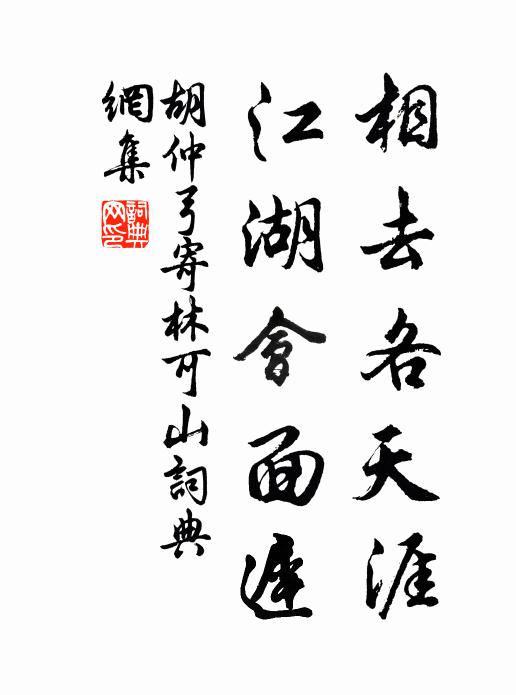 相去各天涯
江湖會面遲
胡仲弓寄林可山詞典
網集
詞典網印